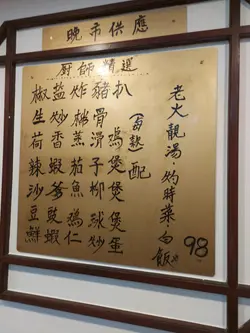 晚市供應
廚師精選
椒盐炸豬扒
生炒排骨
荷香蒸滑鸡
辣蝦茄子煲
沙爹魚柳煲
豆豉鸡球煲
鮮蝦仁炒蛋
配
老火靚湯·灼時菜·白飯
98